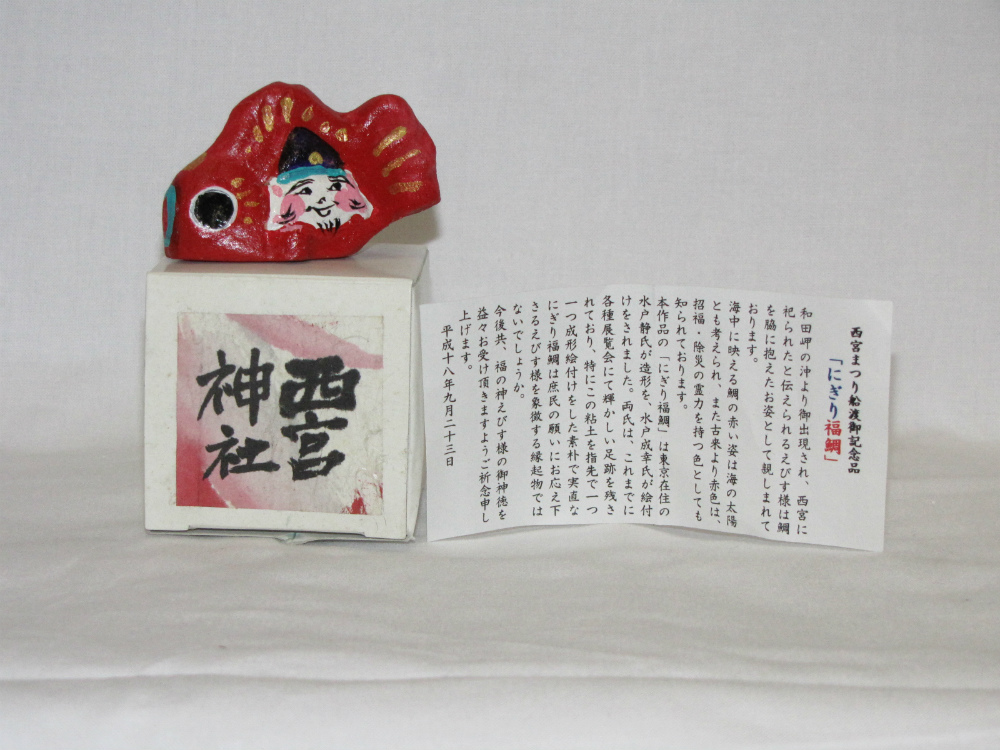 西宮
神社
西宮まつり船渡御記念品
「にぎり福鯛」
和田岬の沖より御出現され、西宮に
祀られたと伝えられるえびす様は鯛
を脇に抱えたお姿として親しまれて
おります。
海中に映える鯛の赤い姿は海の太陽
とも考えられ、また古来より赤色は、
招福・除災の霊力を持つ色としても
知られております。
本作品の「にぎり福鯛」は東京在住の
水戸静氏が造形を、水戸成幸氏が絵付
けをされました。両氏は、これまでに
各種展覧会にて輝かしい足跡を残さ
れており、特にこの粘土を指先で一つ
一つ成形絵付けをした素朴で実直な
にぎり福鯛は庶民の願いにお応え下
さるえびす様を象徴する縁起物では
ないでしょうか。
今後共、福の神えびす様の御神徳を
益々お受け頂きますようご祈念申し
上げます。
平成十八年九月二十三日